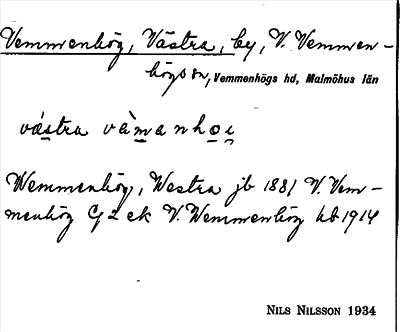 Vemmenhög, Västra, by, V. Vemmen-
högs sn, Vemmenhögs hd, Malmöhus län
västra vàmanhoi
Wemmenhög, Westra jb 1881 V. Vem-
menhög G 2 ek V. Wemmenhög kb 1914
NILS NILSSON 1934